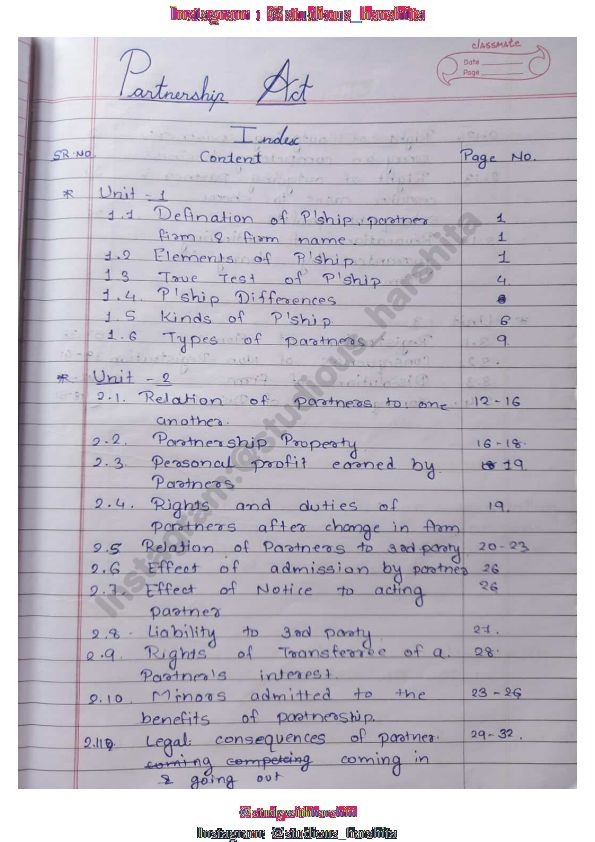 Instagram : @studious_harshita
classmate
Date
Page
Partnership Act
Index
SR.NO. Content Page No.
* Unit - 1
1.1 Defination of P'ship, partner 1
firm & firm name 1
1.2 Elements of P'ship 1
1.3 True Test of P'ship 4
1.4. P'ship Differences
1.5 Kinds of P'ship 6
1.6 Types of partners 9
* Unit - 2
2.1. Relation of partners to one 12-16
another.
2.2. Partnership Property 16-18.
2.3. Personal profit earned by 19.
Partners
2.4. Rights and duties of 19.
partners after change in firm
2.5 Relation of Partners to 3rd party 20-23
2.6 Effect of admission by partner 26
2.7. Effect of Notice to acting 26
partner
2.8. Liability to 3rd party. 27.
2.9. Rights of Transferree of a. 28.
Partner's interest.
2.10. Minors admitted to the 23-26
benefits of partnership.
2.11 Legal consequences of partner. 29-32.
coming competing coming in
& going out
Instagram:@studious_harshita
Instagram: @studious_harshita